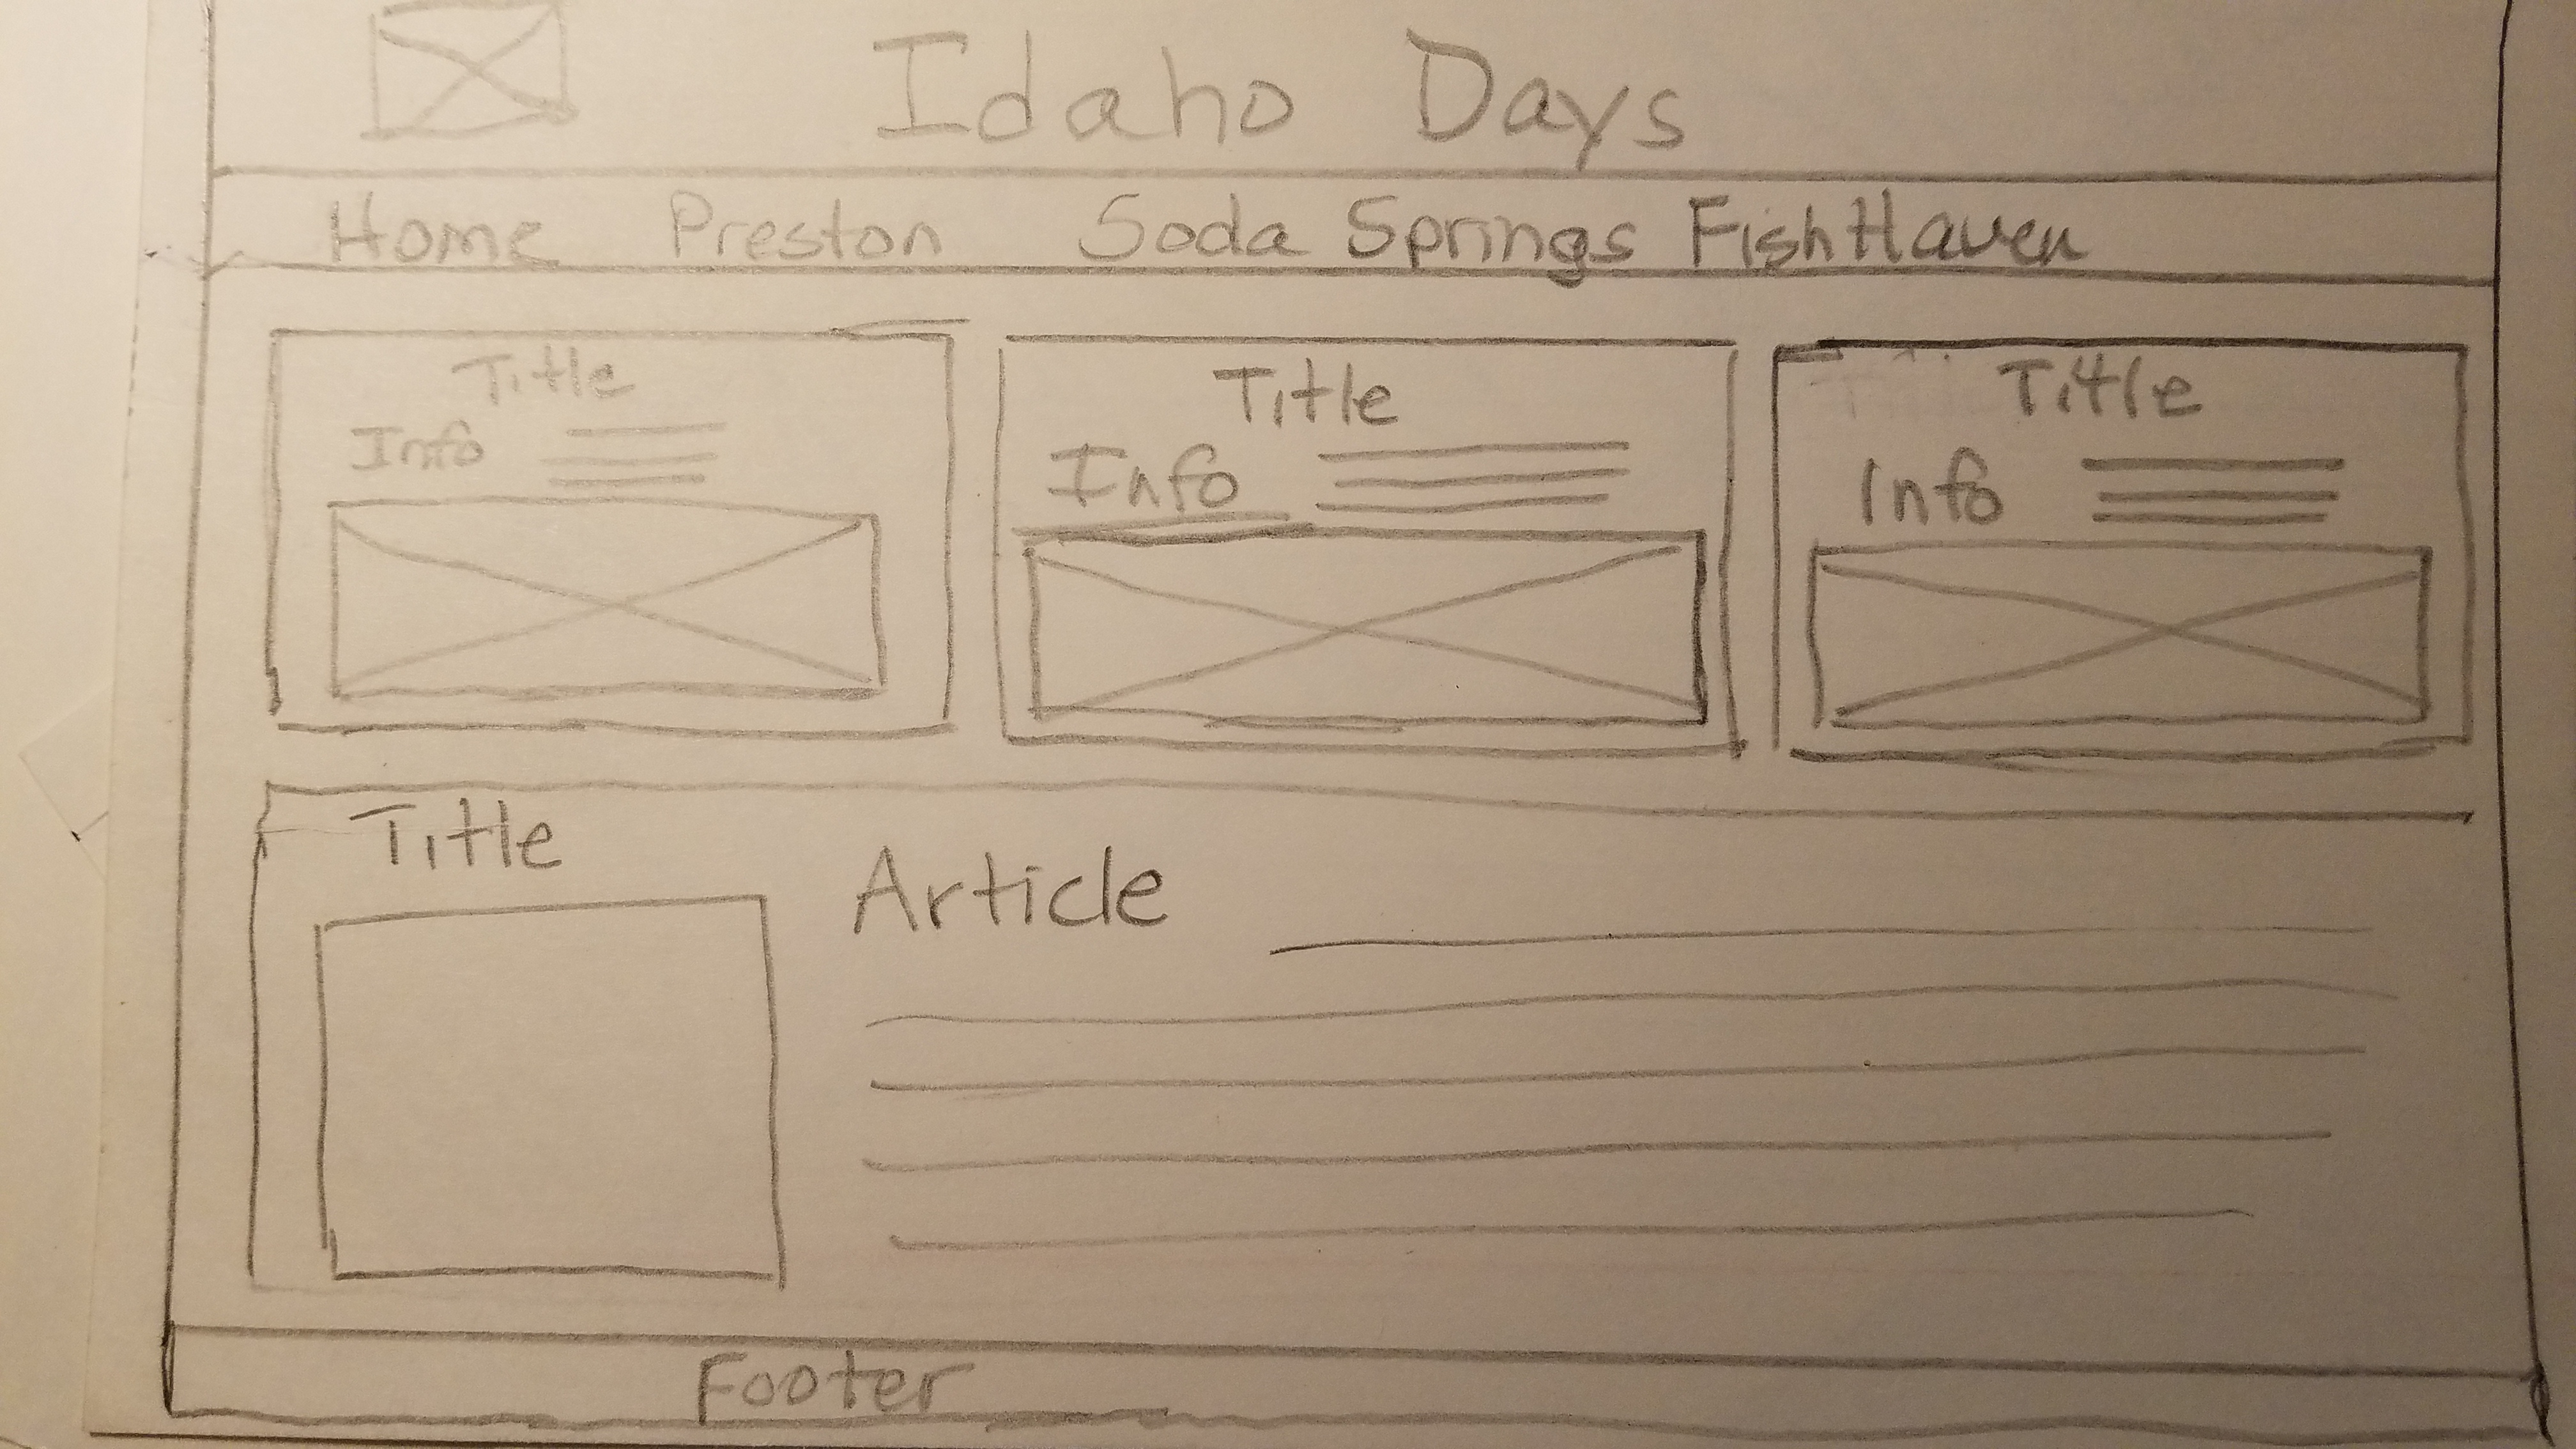 Idaho Days
Home Preston Soda Springs FishHaven
Title
Info
Title
Info
Title
Info
Title
Article
Footer